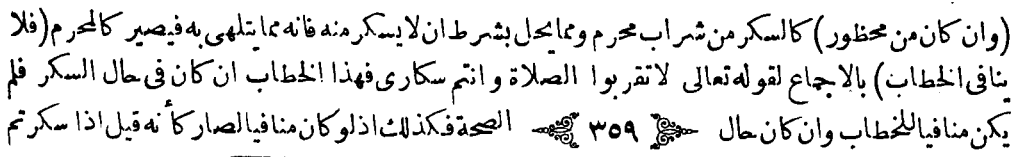 (وان كان من محظور) كالسكر من شراب محرم ومما يحل بشرط ان لا يسكر منه فانه مما يتلهى به فيصير كالمحرم (فلا
ينافى الخطاب) بالاجماع لقوله تعالى لا تقربوا الصلاة وانتم سكارى فهذا الخطاب ان كان فى حال السكر فلم
يكن منافيا للخطاب وان كان حال ٣٥٩ الصحة فكذلك اذ لو كان منافيا لصار كأنه قيل اذا سكرتم